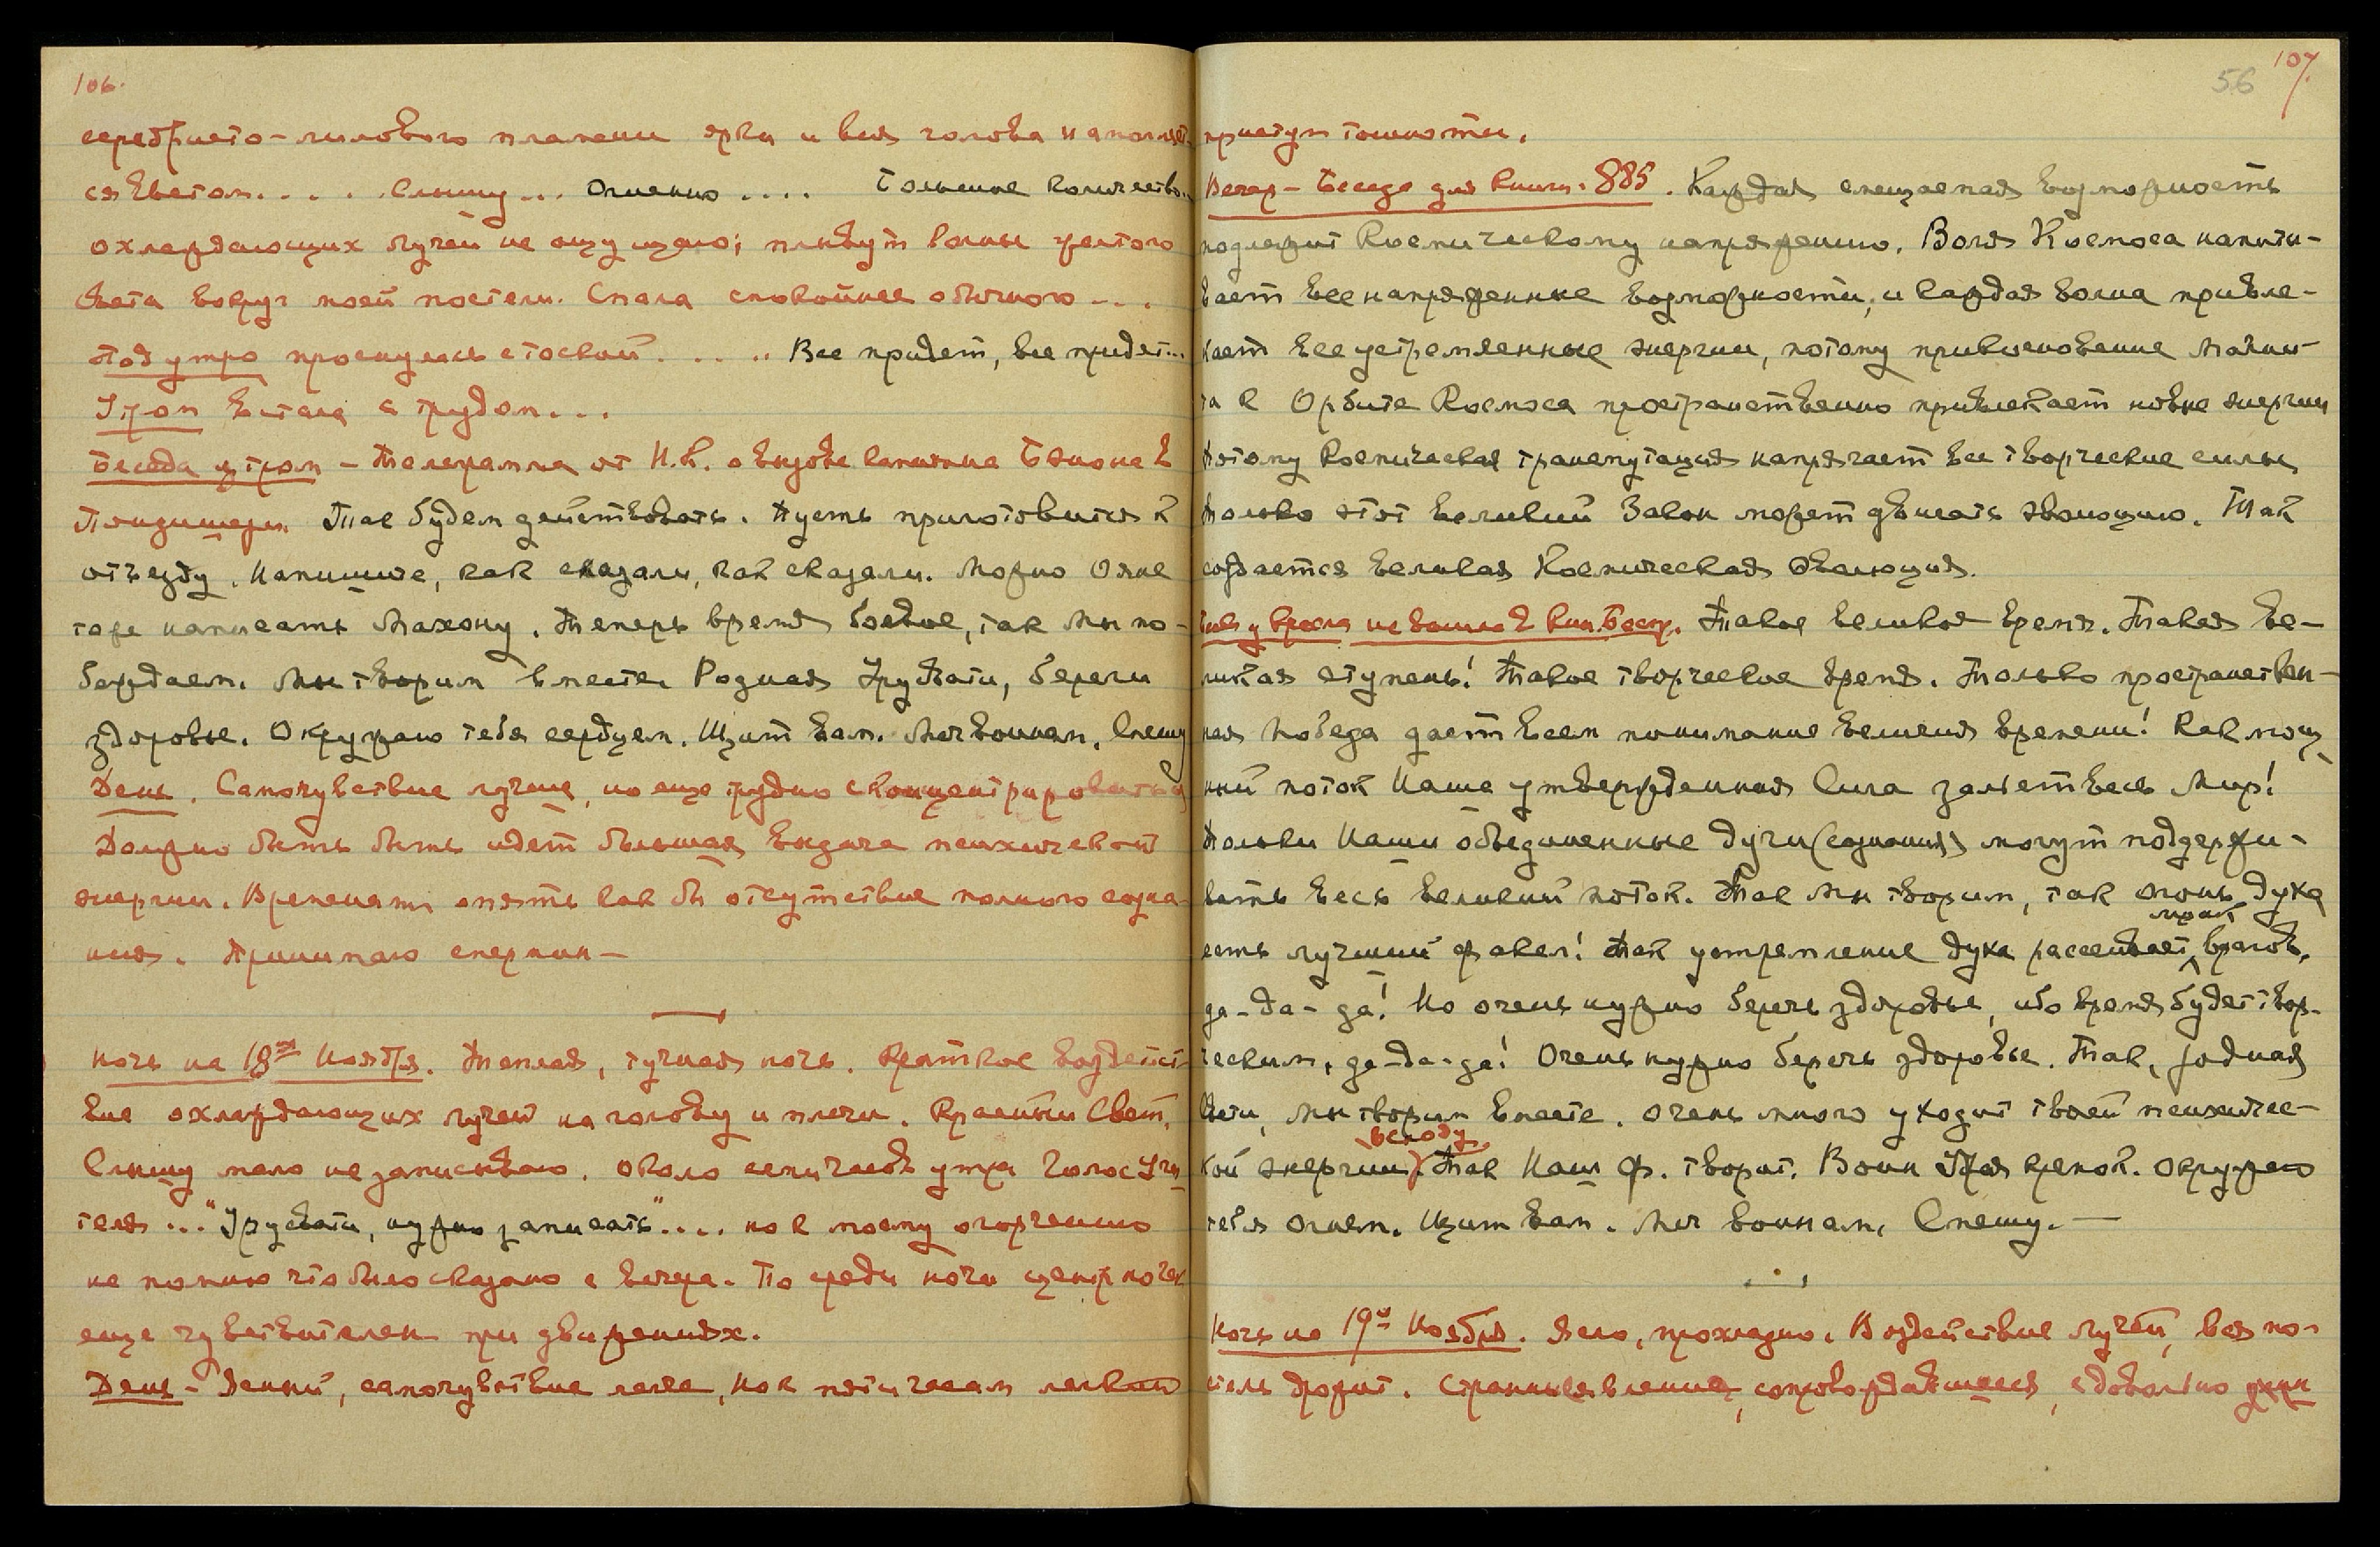 106.
серебристо-лилового пламени ярки и вся голова наполняет-
ся светом.... Слышу... Огненно.... Большое количество..
охлаждающих лучей не ощущаю; плывут волны желтого
света вокруг моей постели. Спала спокойнее обычного...
Под утро проснулась с тоской..... Все придет, все придет...
Утром встала с трудом...
Беседа утром – Телеграмма от Н.К. о вызове капитана Бэнона в
Пондишери Так будем действовать. Пусть приготовится к
отъезду. Напишите, как сказали, как сказали. Можно Ояне
тоже написать Махону. Теперь время боевое, так мы по-
беждаем. Мы творим вместе. Родная Урусвати, береги
здоровье. Окружаю тебя сердцем. Щит вам. Меч воинам. Спешу
День. Самочувствие лучше, но еще трудно сконцентрироваться
Должно быть быть идет большая выдача психической
энергии. Временами опять как бы отсутствие полного созна-
ния. Принимаю спермин –
Ночь на 18ое Ноября. Теплая, тучная ночь. Краткое воздейст-
вие охлаждающих лучей на голову и плечи. Красный Свет.
Слышу мало не записываю. Около семи часов утра Голос Учи-
теля... "Урусвати, нужно записать".... но к моему огорчению
не помню что было сказано с вечера. По среди ночи центр почек
еще чувствителен при движениях.
День – Ясный, самочувствие легче, но к пяти часам легкий
107.
56
приступ тошноты.
Вечер – Беседа для Книги. 885. Каждая смещаемая возможность
подлежит Космическому напряжению. Воля Космоса напиты-
вает все напряженные возможности, и каждая волна привле-
кает все устремленные энергии, потому прикосновение Магни-
та к Орбите Космоса пространственно привлекает новые энергии
Потому Космическая трансмутация напрягает все творческие силы,
Только этот великий Закон может двигать эволюцию. Так
создается великая Космическая Эволюция.
не вошло в Кн. Беспр. Такое великое время. Такая ве-
ликая ступень! Такое творческое время. Только пространствен-
ная победа дает всем понимание величия времени! Как мощ-
ный поток Наша утвержденная Сила зальет весь Мир!
Только Наши объединенные Духи (сознания) могут поддержи-
вать весь великий поток. Так мы творим, так огонь духа
есть лучший факел! Так устремление духа рассеивает мрак врагов,
да-да-да! Но очень нужно беречь здоровье, ибо время будет твор-
ческим, да-да-да! Очень нужно беречь здоровье. Так, родная
Свати, мы творим вместе. Очень много уходит твоей психичес-
кой энергии всюду. Так Наш Ф. творит. Воин Удрая крепок. Окружаю
тебя огнем. Щит вам. Меч воинам. Спешу. –
Ночь на 19ое Ноября. Ясно, прохладно. Воздействие лучей, вся по-
стель дрожит. Странные явления, сопровождавшиеся, довольно